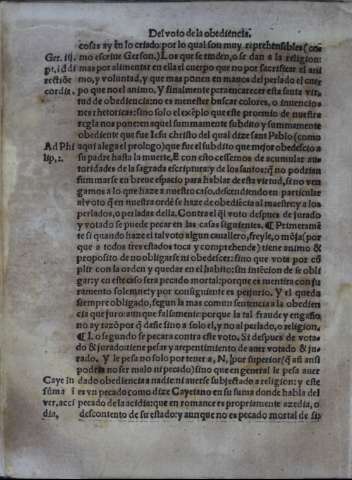 Del voto de la obediẽncia.
cosas ay ẽn lo criado: por lo qual son muy reprehensibles (co
mo escriue Gerson.) Los que se rinden, o se dan a la religion:
mas por alimentar en ella el cuerpo que no por sacrificar el ani
mo, y voluntad, y que mas ponen en manos del perlado el cuer
po que no el animo. Y finalmente para encarecer esta sancta vir,
tud de obediencia: no es menester buscar colores, o inuencio
nes rhetoricas: sino solo el exẽplo que este proemio de nuestra
regla nos pone: en aquel summamente subdito y summamente
obediente que fue Iesu christo del qual dize sant Pablo (como
aqui alega el prologo) que fue el subdito que mejor obedescio a
su padre hasta la muerte, E con esto cessemos de acumular au,
toridades de la sagrada escriptura y de los sanctos: q̃ no podrian
summarse en breue espacio para hablar de esta virtud, si no ven
gamos a lo que haze a nuestro caso, descendiendo en particular
al voto q̃ en nuestra ordẽ se haze de obediẽcia al maestre y a los
perlados, o perladas della. Contra el q̃l voto despues de jurado
y votado se puede pecar en las cosas siguientes. ¶ Primeramẽ
te si quando haze el tal voto algun cauallero, freyle, o mõja (por
que a todos tres estados toca y comprehende) tiene animo &
proposito de no obligarse ni obedescer: sino que vota por cũ
plir con la orden y quedar en el habito: sin intẽcion de se obli
gar: y en este caso sera pecado mortal: porque es mentira con ju
ramento solemne: y por consiguiente es perjurio. Y el queda
siempre obligado, segun la mas comũ sentencia a la obedien
cia que juro: aunque falsamente: porque la tal fraude y engaño
no ay razõ por q̃ dañe sino a solo el, y no al perlado, o religion.
¶ Lo segundo se peca contra este voto. Si despues de vota
do & jurado: tiene pesar y arrepentimiento de auer votado & ju
rado. Y le pesa no solo por tener a, N, [por superior (q̃ assi
podria no ser malo ni pecado) sino que en general le pesa auer
dado obediencia a nadie: ni auerse subjectado a religion: y este
es vn pecado como dize Cayetano en su suma donde habla del
pecado de la acidia: que en romance es propriamente azedia, o
descontento de su estado: y aunque no es pecado mortal de
Ger. iij.
pt, i. d di
rectiõe
cordis.
Ad Phi
lip, 2.
Caye in
sũma i
ver, acci
dia,